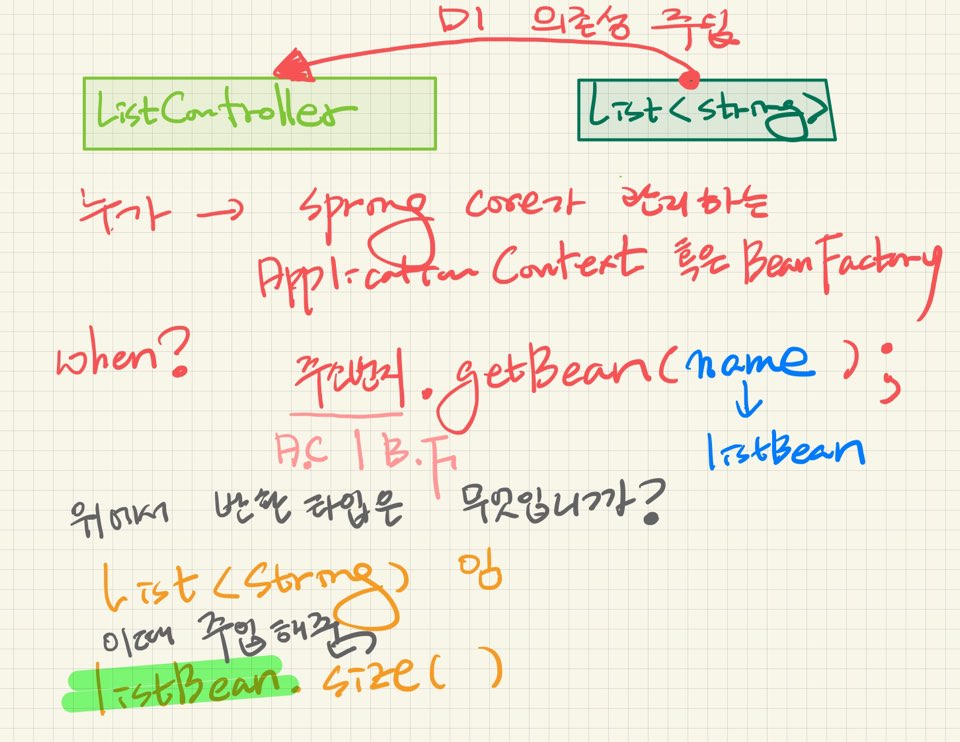 DI 의존성 주입
ListController
List<string>
누가 → spring core가 관리하는
Application Context 혹은 BeanFactory
when?
주소번지.getBean(name);
↓
A.C | B.F
listBean
위에서 반환 타입은 무엇입니까?
List<String> 임
이때 주입해줌
listBean.size( )